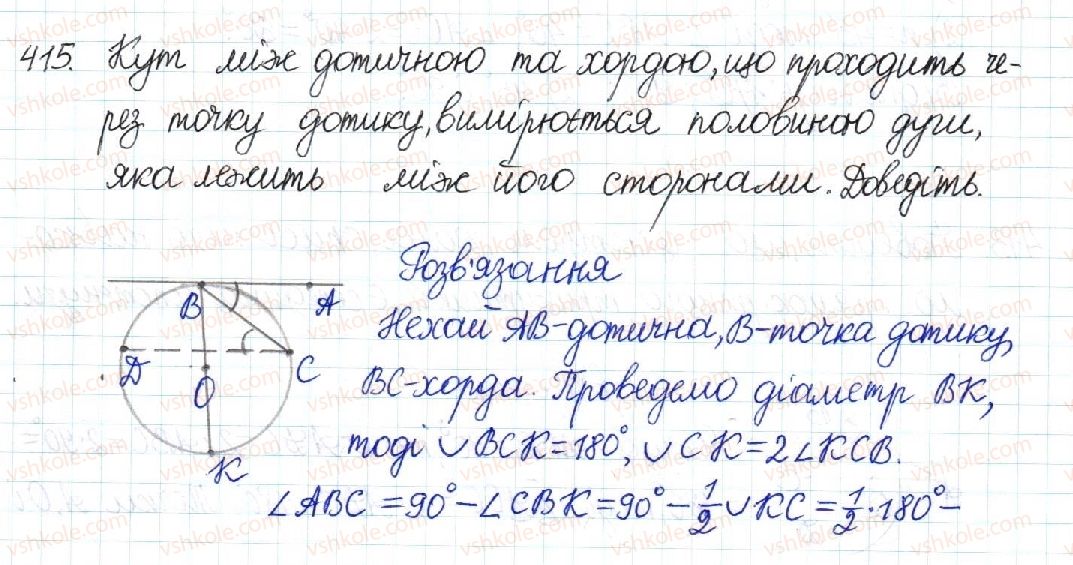 415. Кут між дотичною та хордою, що проходить че-
рез точку дотику, вимірюється половиною дуги,
яка лежить між його сторонами. Доведіть.
Розв'язання
B A
Нехай AB-дотична, B-точка дотику,
D O C
BC-хорда. Проведемо діаметр BK,
тоді ∪BCK=180°, ∪CK=2∠KCB.
K
∠ABC=90°-∠CBK=90°-1/2∪KC=1/2·180°-